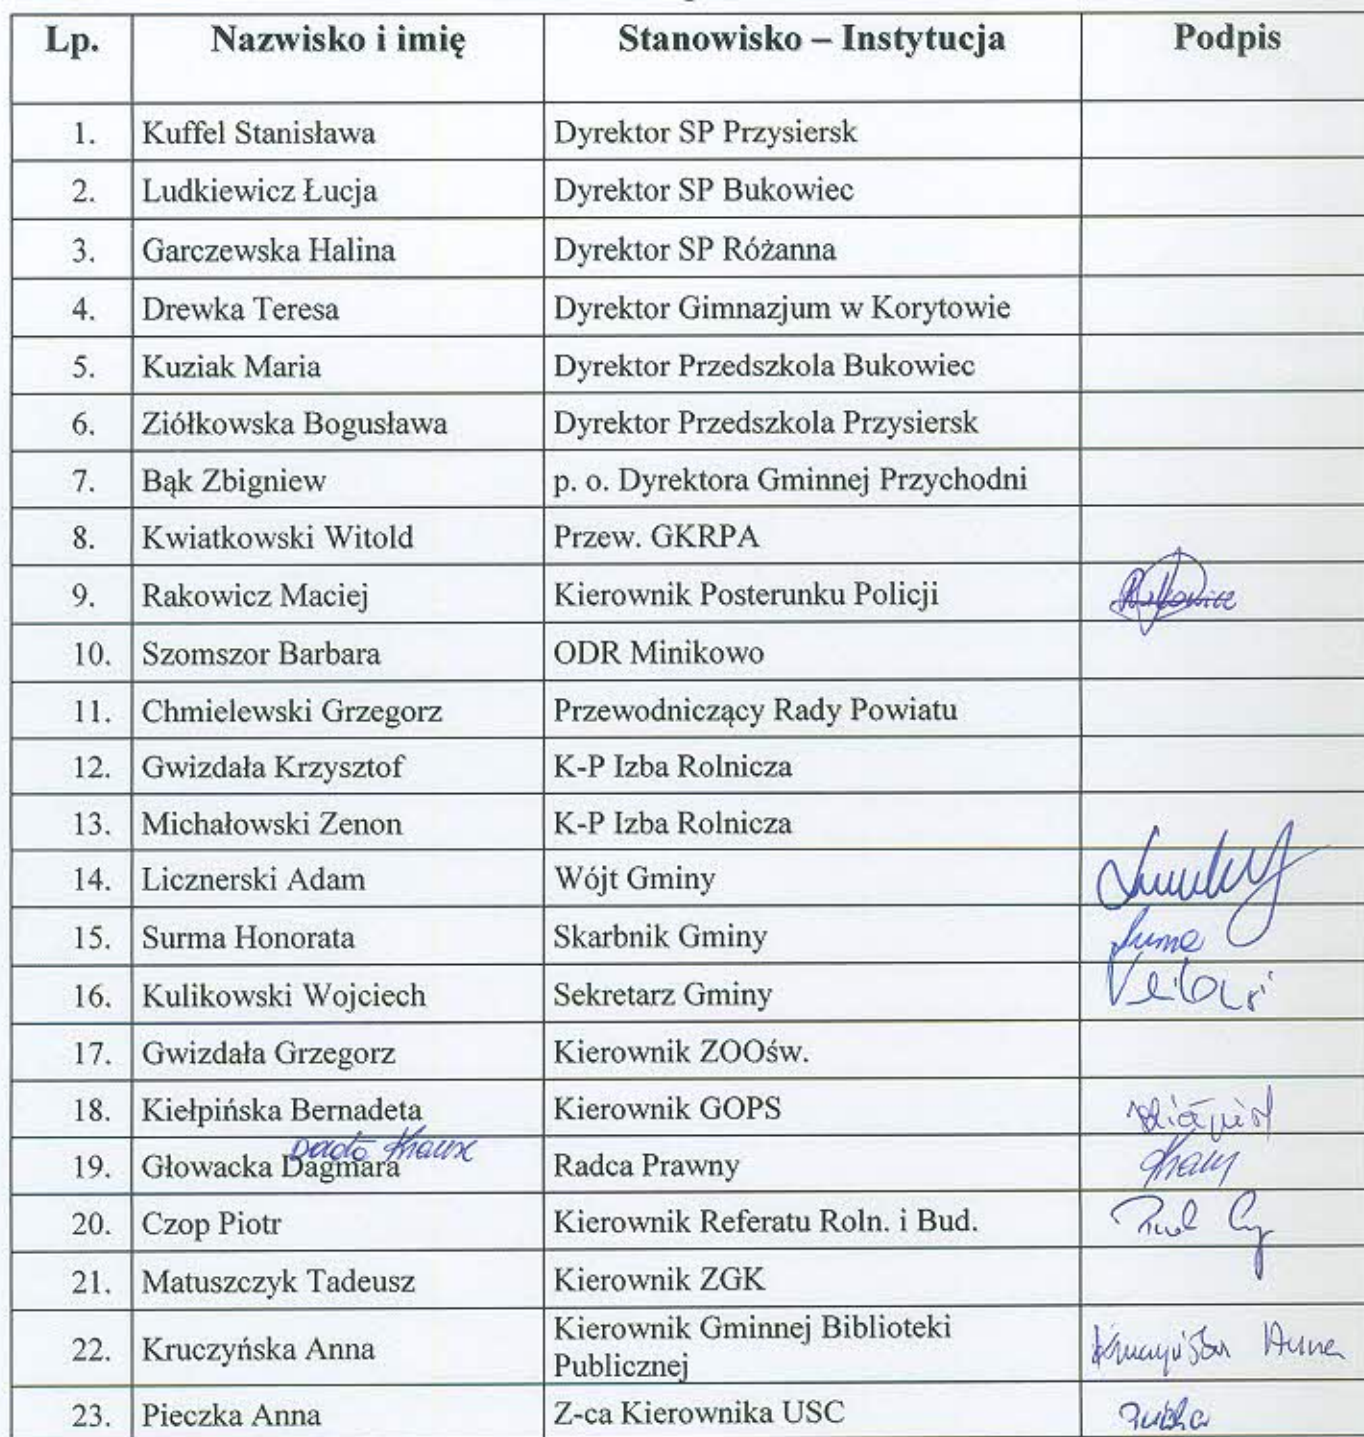 Lp. Nazwisko i imię Stanowisko – Instytucja Podpis
1. Kuffel Stanisława Dyrektor SP Przysiersk
2. Ludkiewicz Łucja Dyrektor SP Bukowiec
3. Garczewska Halina Dyrektor SP Różanna
4. Drewka Teresa Dyrektor Gimnazjum w Korytowie
5. Kuziak Maria Dyrektor Przedszkola Bukowiec
6. Ziółkowska Bogusława Dyrektor Przedszkola Przysiersk
7. Bąk Zbigniew p. o. Dyrektora Gminnej Przychodni
8. Kwiatkowski Witold Przew. GKRPA
9. Rakowicz Maciej Kierownik Posterunku Policji
10. Szomszor Barbara ODR Minikowo
11. Chmielewski Grzegorz Przewodniczący Rady Powiatu
12. Gwizdała Krzysztof K-P Izba Rolnicza
13. Michałowski Zenon K-P Izba Rolnicza
14. Licznerski Adam Wójt Gminy
15. Surma Honorata Skarbnik Gminy
16. Kulikowski Wojciech Sekretarz Gminy
17. Gwizdała Grzegorz Kierownik ZOOśw.
18. Kiełpińska Bernadeta Kierownik GOPS
19. Głowacka Dagmara Radca Prawny
20. Czop Piotr Kierownik Referatu Roln. i Bud.
21. Matuszczyk Tadeusz Kierownik ZGK
22. Kruczyńska Anna Kierownik Gminnej Biblioteki
Publicznej
23. Pieczka Anna Z-ca Kierownika USC